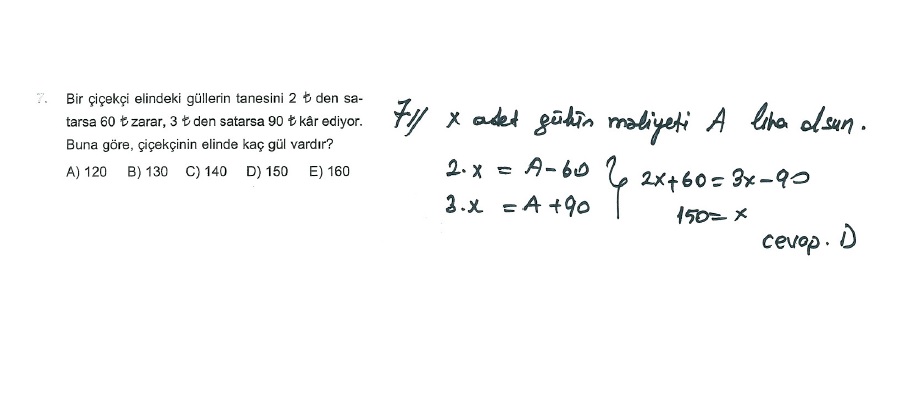 7. Bir çiçekçi elindeki güllerin tanesini 2 ₺ den sa-
tarsa 60 ₺ zarar, 3 ₺ den satarsa 90 ₺ kâr ediyor.
Buna göre, çiçekçinin elinde kaç gül vardır?
A) 120 B) 130 C) 140 D) 150 E) 160
7// x adet gülün maliyeti A lira olsun.
2.x = A-60
3.x = A+90
2x+60=3x-90
150=x
cevap. D